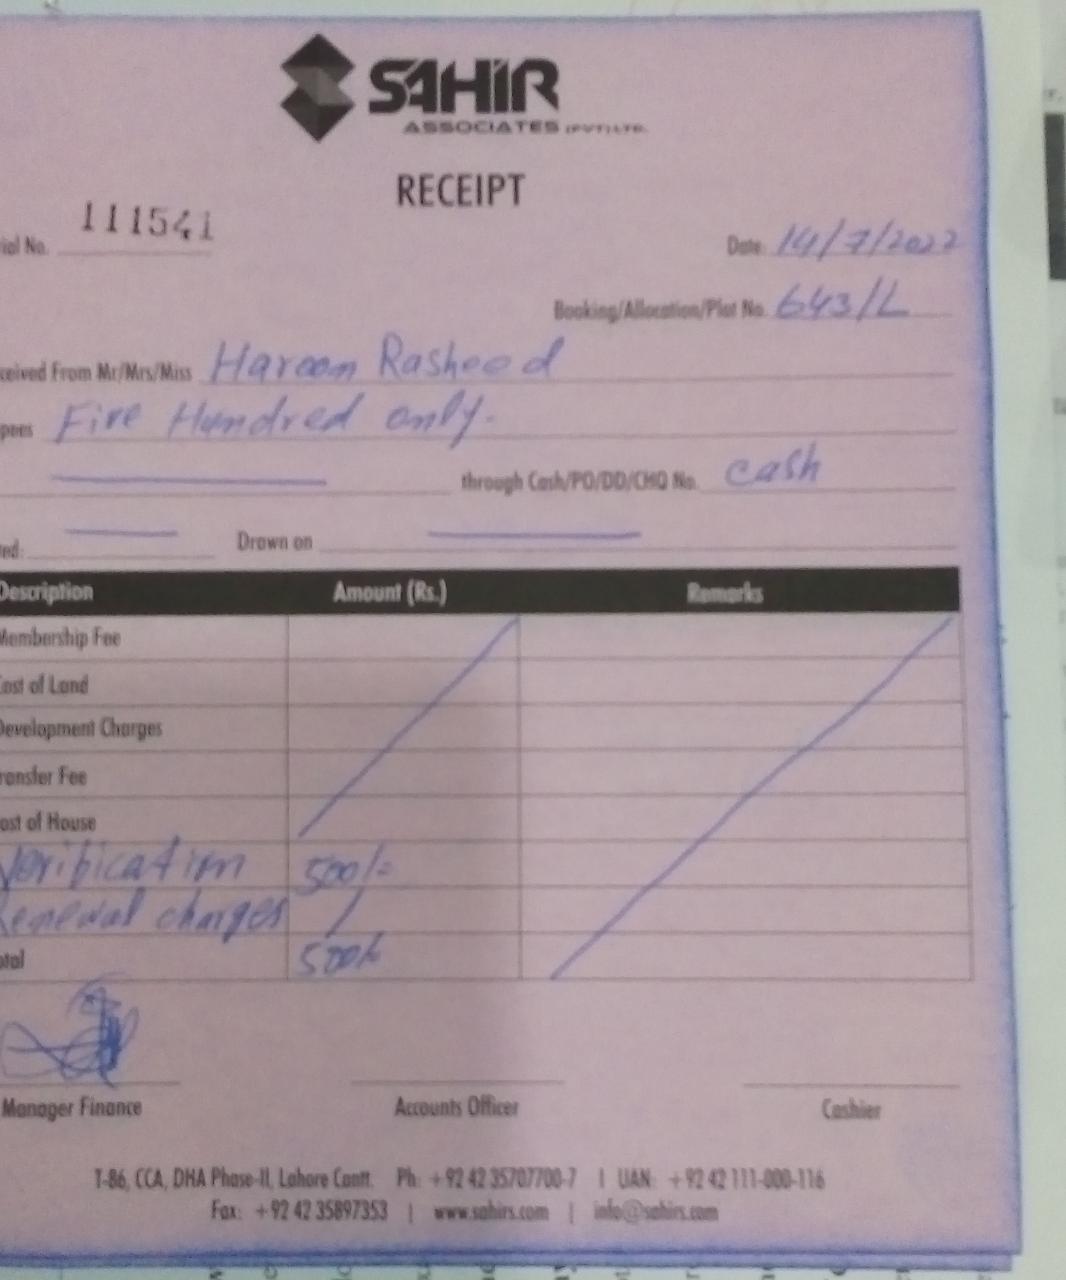 SAHIR
ASSOCIATES (PVT) LTD.
RECEIPT
ial No. 111541
Date: 14/7/2022
Booking/Allocation/Plot No. 643/L
ceived From Mr/Mrs/Miss Haroon Rasheed
pees Five Hundred only.
through Cash/PO/DD/CHQ No. cash
ted: Drawn on
Description Amount (Rs.) Remarks
Membership Fee
ost of Land
Development Charges
ransfer Fee
ost of House
Verification 500/=
Renewal charges /
otal 500/-
Manager Finance Accounts Officer Cashier
T-86, CCA, DHA Phase-II, Lahore Cantt. Ph: +92 42 35707700-7 | UAN: +92 42 111-000-116
Fax: +92 42 35897353 | www.sahirs.com | info@sahirs.com